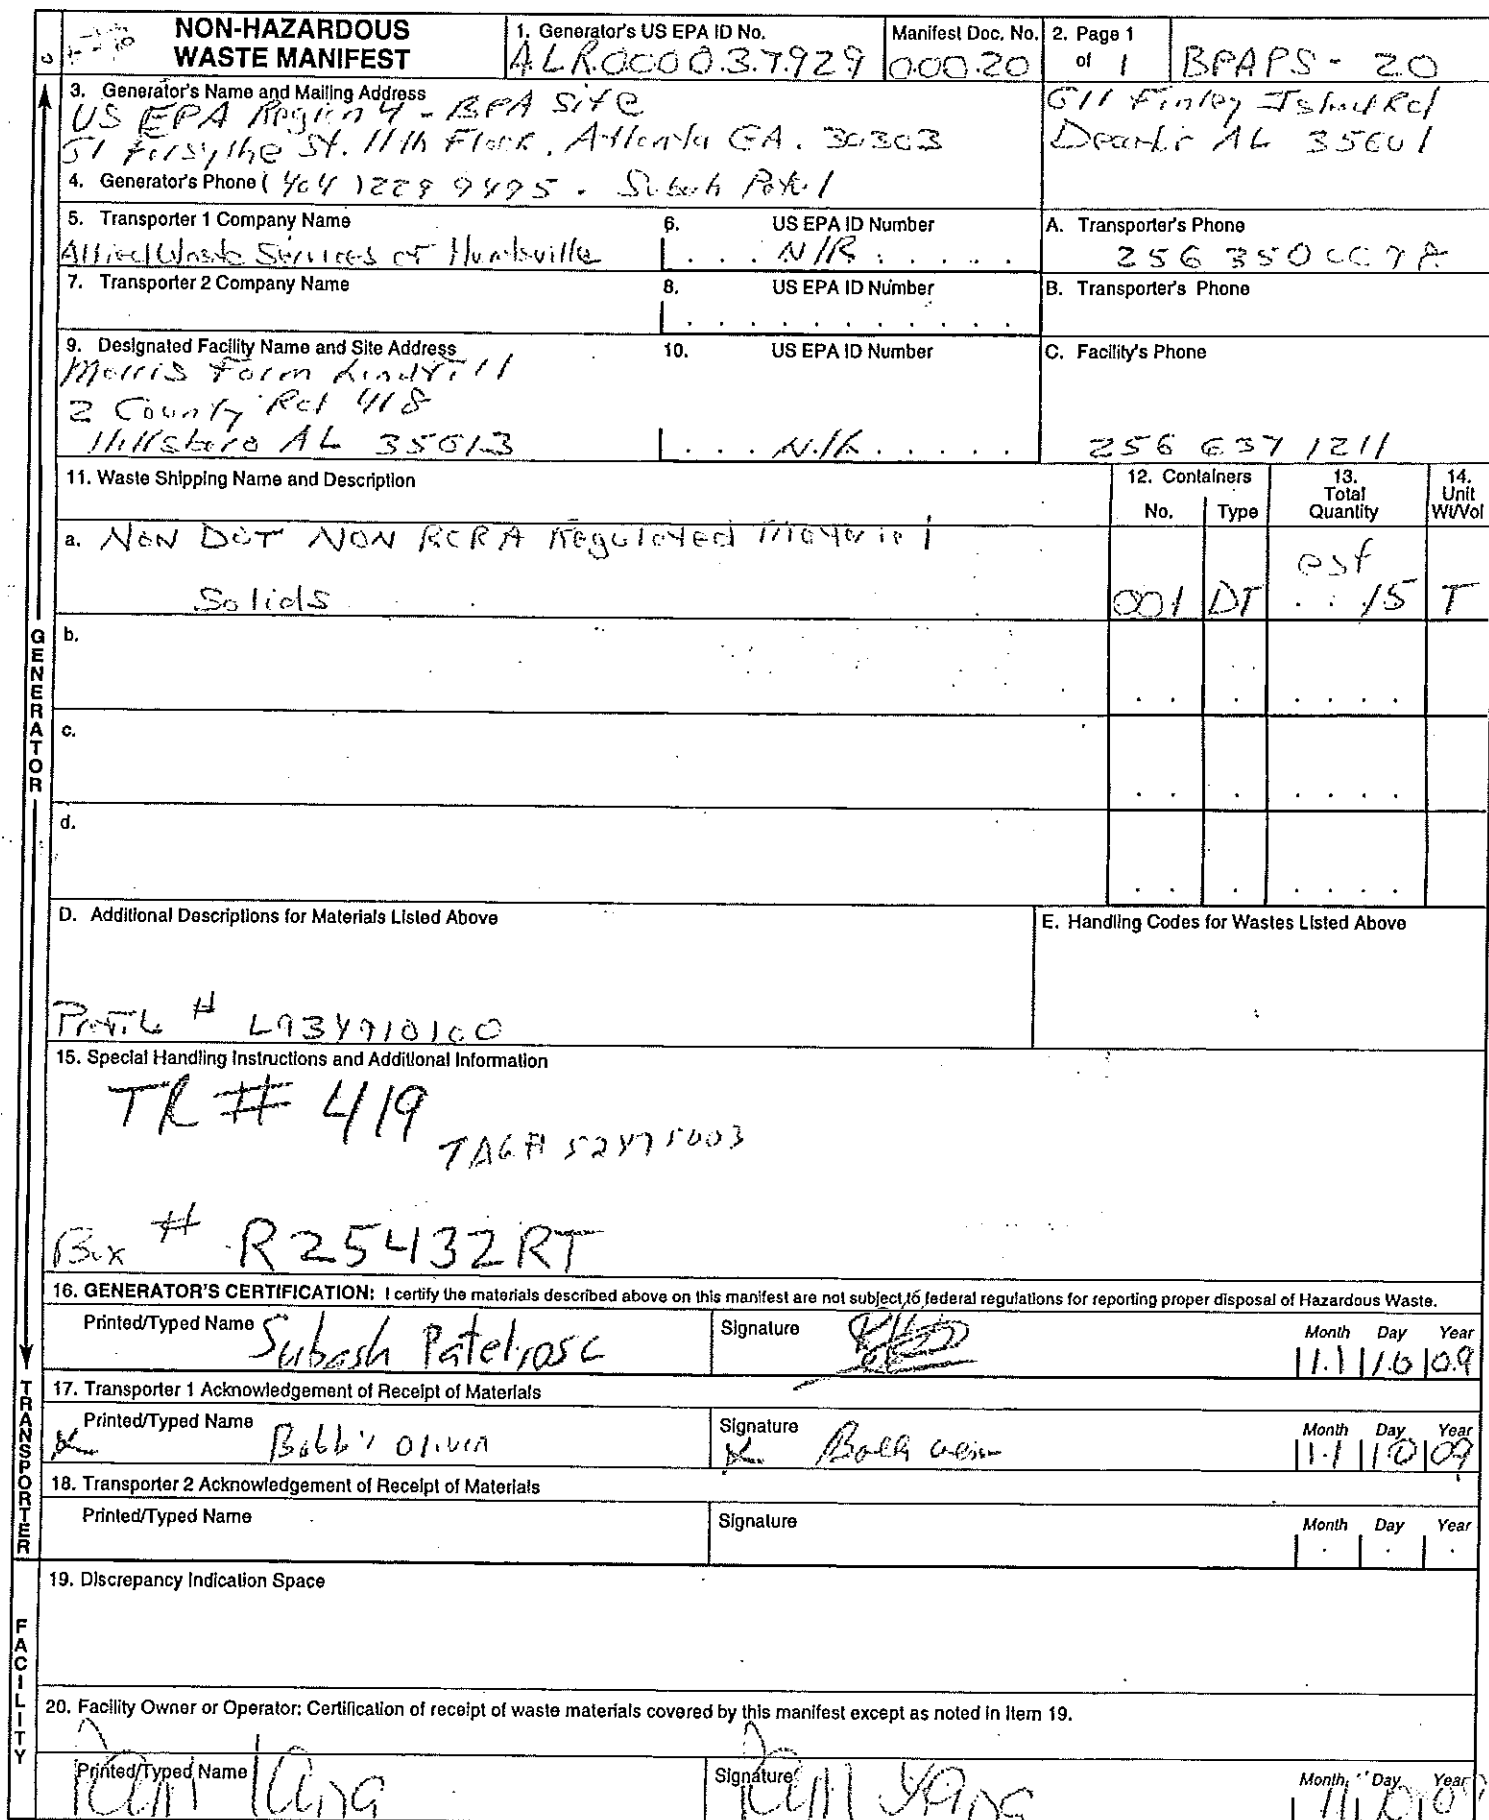 NON-HAZARDOUS
WASTE MANIFEST
1. Generator's US EPA ID No.
ALR000037929
Manifest Doc. No.
00020
2. Page 1
of 1
BPAPS - 20
3. Generator's Name and Mailing Address
US EPA Region 4 - BPA Site
51 Forsythe St. 11th Floor, Atlanta GA. 30303
611 Finley Island Rd
AL 35601
4. Generator's Phone (404) 229 9495 - Subash Patel
5. Transporter 1 Company Name
Allied Waste Services of Huntsville
6. US EPA ID Number
N/R
A. Transporter's Phone
256 350
7. Transporter 2 Company Name
8. US EPA ID Number
B. Transporter's Phone
9. Designated Facility Name and Site Address
Morris Farm Landfill
2 County Rd 418
Hillsboro AL 35613
10. US EPA ID Number
N/R
C. Facility's Phone
256 637 1211
11. Waste Shipping Name and Description
12. Containers
No.
Type
13.
Total
Quantity
14.
Unit
Wt/Vol
a. NON DOT NON RCRA Regulated Material
Solids
001 DT est 15 T
b.
c.
d.
GENERATOR
D. Additional Descriptions for Materials Listed Above
E. Handling Codes for Wastes Listed Above
Profile #
15. Special Handling Instructions and Additional Information
TR # 419
TAG#
Box # R25432RT
16. GENERATOR'S CERTIFICATION: I certify the materials described above on this manifest are not subject to federal regulations for reporting proper disposal of Hazardous Waste.
Printed/Typed Name
Subash Patel, OSC
Signature
Month Day Year
11 10 09
TRANSPORTER
17. Transporter 1 Acknowledgement of Receipt of Materials
Printed/Typed Name
X
Signature
X
Month Day Year
11 10 09
18. Transporter 2 Acknowledgement of Receipt of Materials
Printed/Typed Name
Signature
Month Day Year
FACILITY
19. Discrepancy Indication Space
20. Facility Owner or Operator: Certification of receipt of waste materials covered by this manifest except as noted in Item 19.
Printed/Typed Name
Signature
Month Day Year